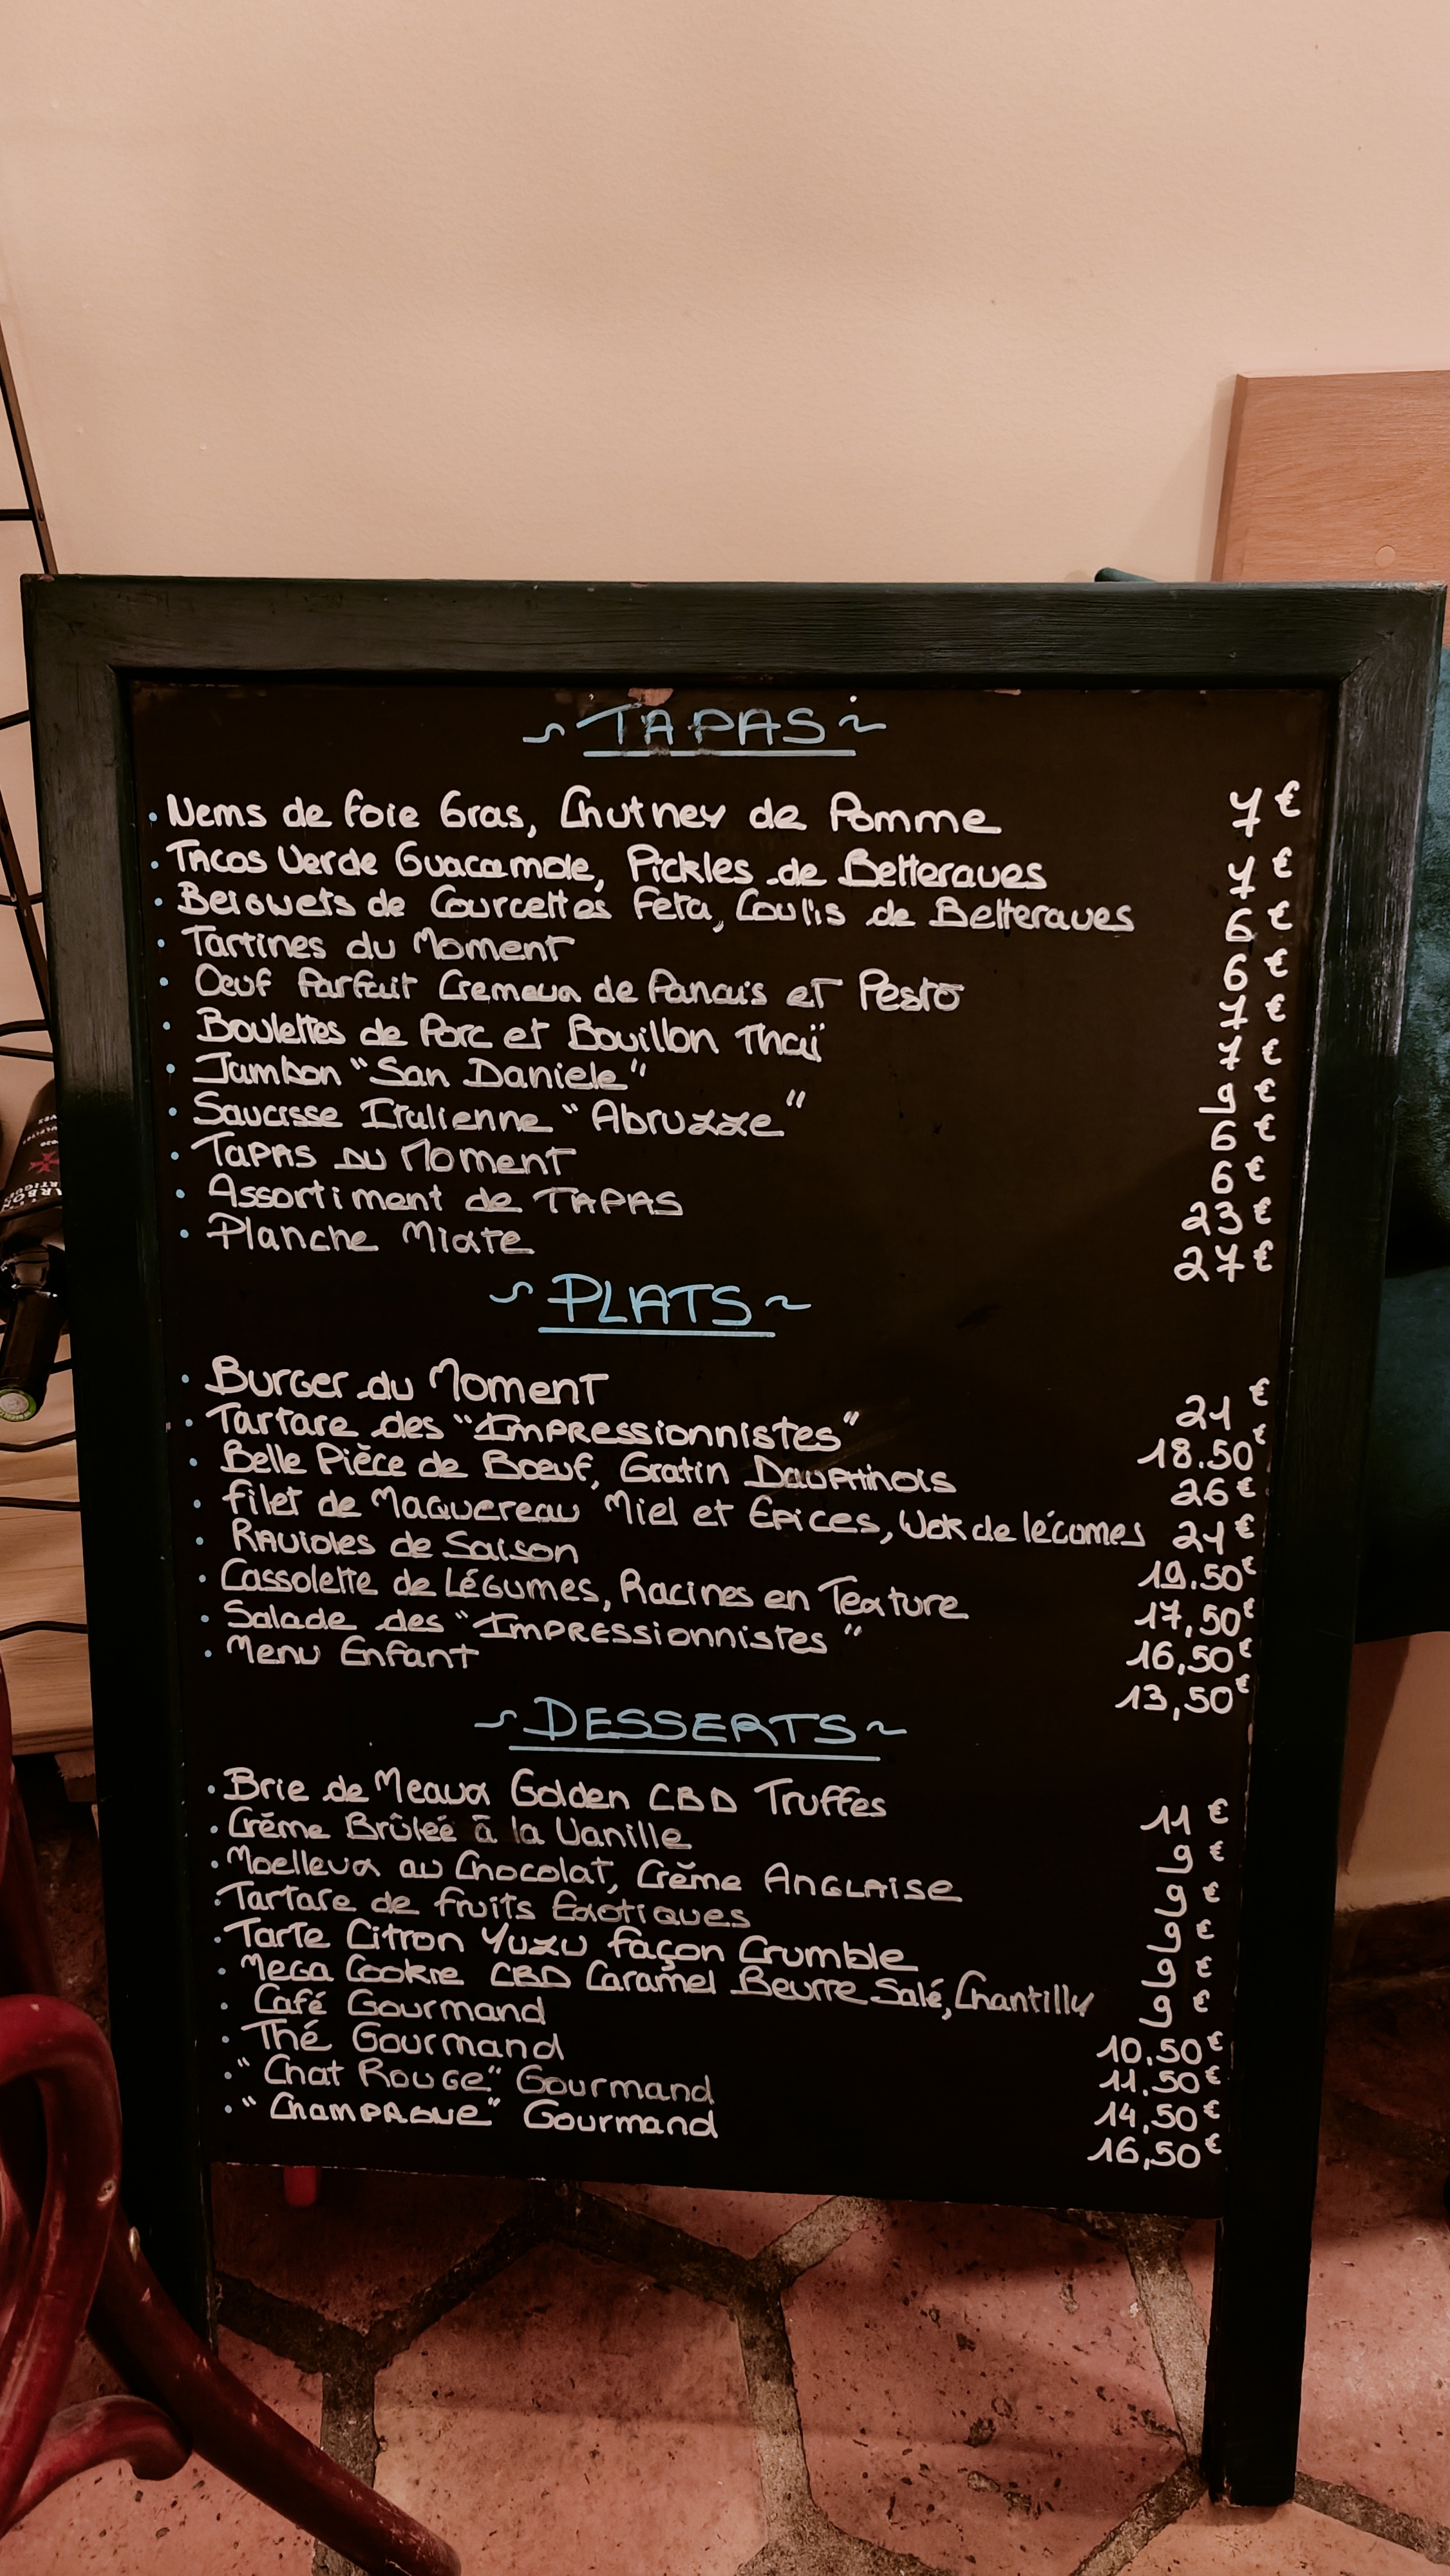 ~ TAPAS ~
• Nems de foie Gras, Chutney de Pomme 7€
• Tacos Verde Guacamole, Pickles de Betteraves 7€
• Beignets de Courcettes Feta, Coulis de Betteraves 6€
• Tartines du Moment 6€
• Oeuf Parfait Cremeux de Panais et Pesto 7€
• Boulettes de Porc et Bouillon Thaï 7€
• Jambon "San Daniele" 9€
• Saucisse Italienne "Abruzze" 6€
• Tapas du Moment 6€
• Assortiment de TAPAS 23€
• Planche Mixte 27€
~ PLATS ~
• Burger du Moment 21€
• Tartare des "Impressionnistes" 18.50€
• Belle Pièce de Boeuf, Gratin Dauphinois 26€
• filet de Maquereau Miel et Epices, Wok de légumes 21€
• Ravioles de Saison 19.50€
• Cassolette de Légumes, Racines en Texture 17,50€
• Salade des "Impressionnistes" 16,50€
• Menu Enfant 13,50€
~ DESSERTS ~
• Brie de Meaux Golden CBD Truffes 11€
• Crème Brûlée à la Vanille 9€
• Moelleux au Chocolat, Crème Anglaise 9€
• Tartare de fruits Exotiques 9€
• Tarte Citron Yuzu façon Crumble 9€
• Mega Cookie CBD Caramel Beurre Salé, Chantilly 9€
• Café Gourmand 10,50€
• Thé Gourmand 11,50€
• "Chat Rouge" Gourmand 14,50€
• "Champagne" Gourmand 16,50€